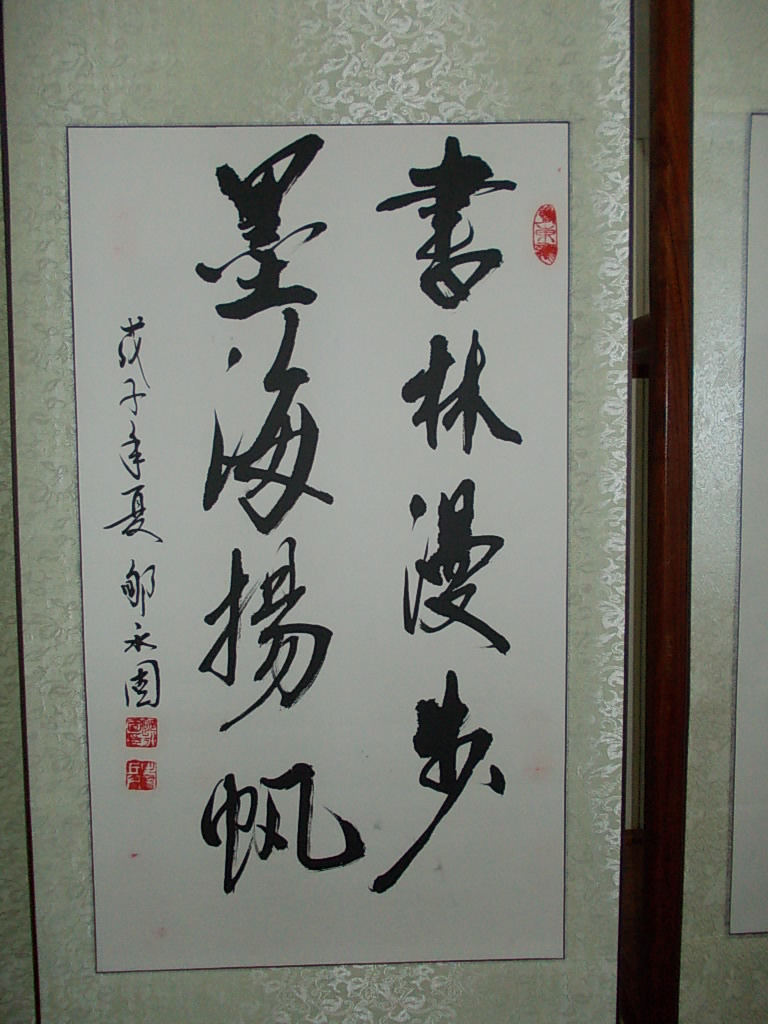 書林漫步
墨海揚帆
戊子年夏 鄒永固